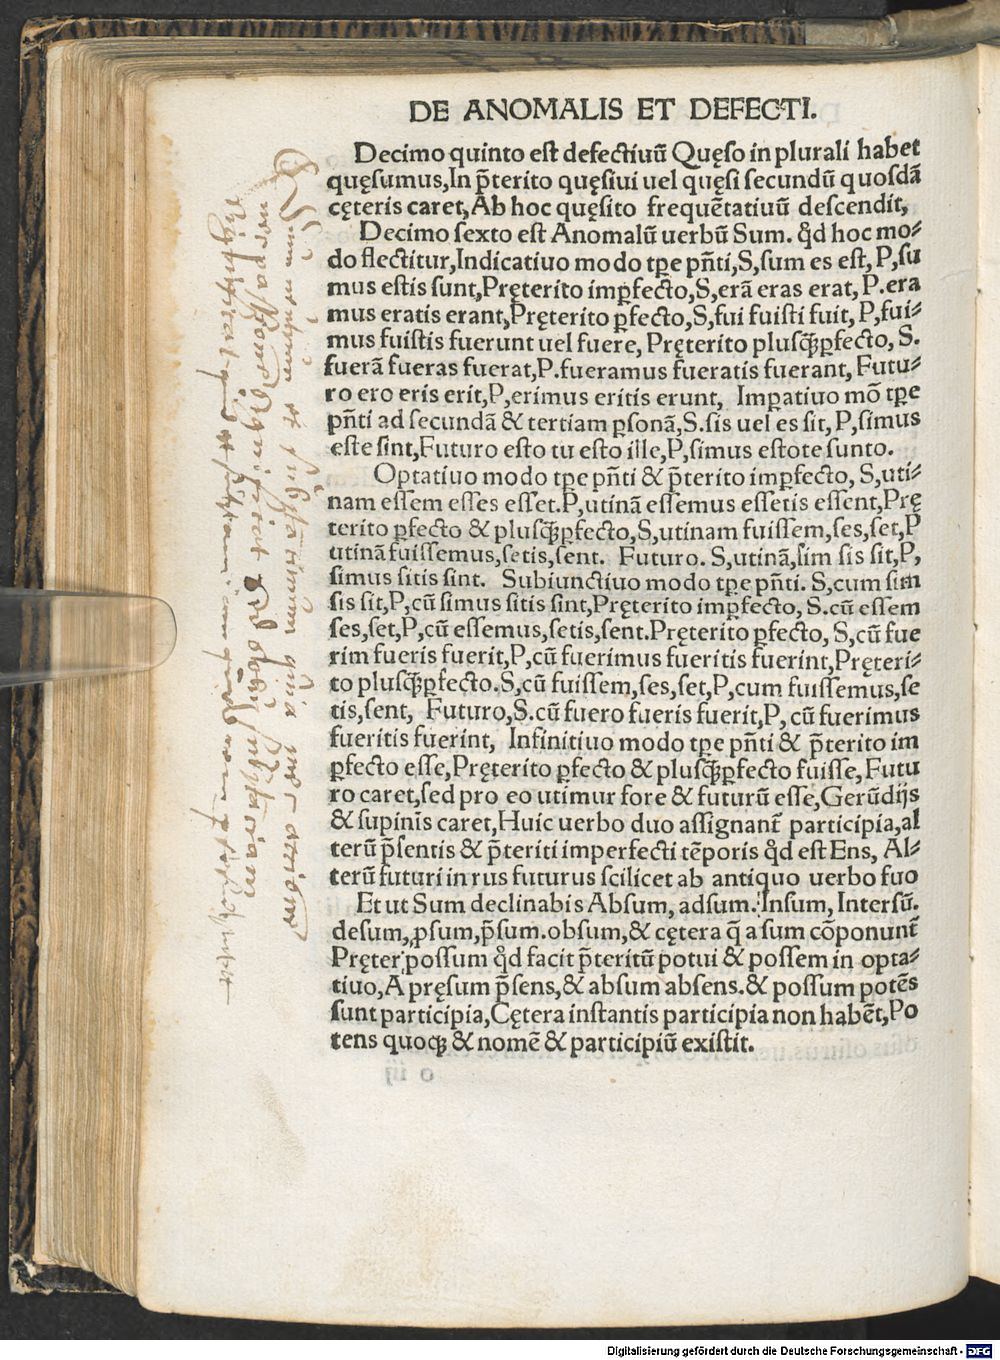 DE ANOMALIS ET DEFECTI.
Decimo quinto est defectiuū Quęso in plurali habet
quęsumus,In p̄terito quęsiui uel quęsi secundū quosdā
cęteris caret,Ab hoc quęsito frequētatiuū descendit,
Decimo sexto est Anomalū uerbū Sum. qd̄ hoc mo-
do flectitur,Indicatiuo modo tꝑe pn̄ti,S,sum es est, P,su
mus estis sunt,Pręterito imꝑfecto,S,erā eras erat, P.era
mus eratis erant,Pręterito ꝑfecto,S,fui fuisti fuit, P,fui-
mus fuistis fuerunt uel fuere, Pręterito plusq̄ꝑfecto, S.
fuerā fueras fuerat,P.fueramus fueratis fuerant, Futu-
ro ero eris erit,P,erimus eritis erunt, Imꝑatiuo mō tꝑe
pn̄ti ad secundā & tertiam ꝑsonā,S.sis uel es sit, P,simus
este sint,Futuro esto tu esto ille,P,simus estote sunto.
Optatiuo modo tꝑe pn̄ti & p̄terito imꝑfecto, S,uti-
nam essem esses esset.P,utinā essemus essetis essent,Prę
terito ꝑfecto & plusq̄ꝑfecto,S,utinam fuissem,ses,set,P
utinā fuissemus,setis,sent. Futuro. S,utinā,sim sis sit,P,
simus sitis sint. Subiunctiuo modo tꝑe pn̄ti. S,cum sim
sis sit,P,cū simus sitis sint,Pręterito imꝑfecto, S.cū essem
ses,set,P,cū essemus,setis,sent.Pręterito ꝑfecto, S,cū fue
rim fueris fuerit,P,cū fuerimus fueritis fuerint,Pręteri-
to plusq̄ꝑfecto.S,cū fuissem,ses,set,P,cum fuissemus,se
tis,sent, Futuro,S.cū fuero fueris fuerit,P, cū fuerimus
fueritis fuerint, Infinitiuo modo tꝑe pn̄ti & p̄terito im
ꝑfecto esse,Pręterito ꝑfecto & plusq̄ꝑfecto fuisse, Futu
ro caret,sed pro eo utimur fore & futurū esse,Gerūdijs
& supinis caret,Huic uerbo duo assignant̄ participia,al
terū p̄sentis & p̄teriti imperfecti tēporis qd̄ est Ens, Al-
terū futuri in rus futurus scilicet ab antiquo uerbo fuo
Et ut Sum declinabis Absum, adsum. Insum, Intersū.
desum, ꝓsum,p̄sum.obsum,& cętera q̄ a sum cōponunt̄
Pręter possum qd̄ facit p̄teritū potui & possem in opta-
tiuo,A pręsum p̄sens,& absum absens.& possum potēs
sunt participia,Cętera instantis participia non habēt,Po
tens quoq; & nomē & participiū existit.
Digitalisierung gefördert durch die Deutsche Forschungsgemeinschaft - DFG